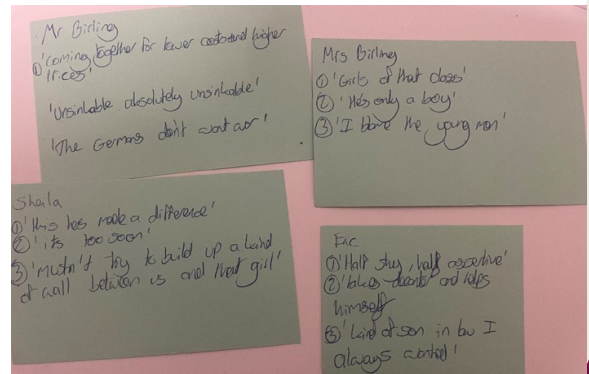 Mr Birling
① 'Coming together for lower costs and higher
prices'
'Unsinkable absolutely unsinkable'
'The Germans don't want war'
Mrs Birling
① 'Girls of that class'
② 'He's only a boy'
③ 'I blame the young man'
Sheila
① 'this has made a difference'
② 'its too soon'
③ 'mustn't try to build up a kind
of wall between us and that girl'
Eric
① 'Half shy, half assertive'
② 'takes decanter and helps
himself'
③ 'kind of son in law I
always wanted'